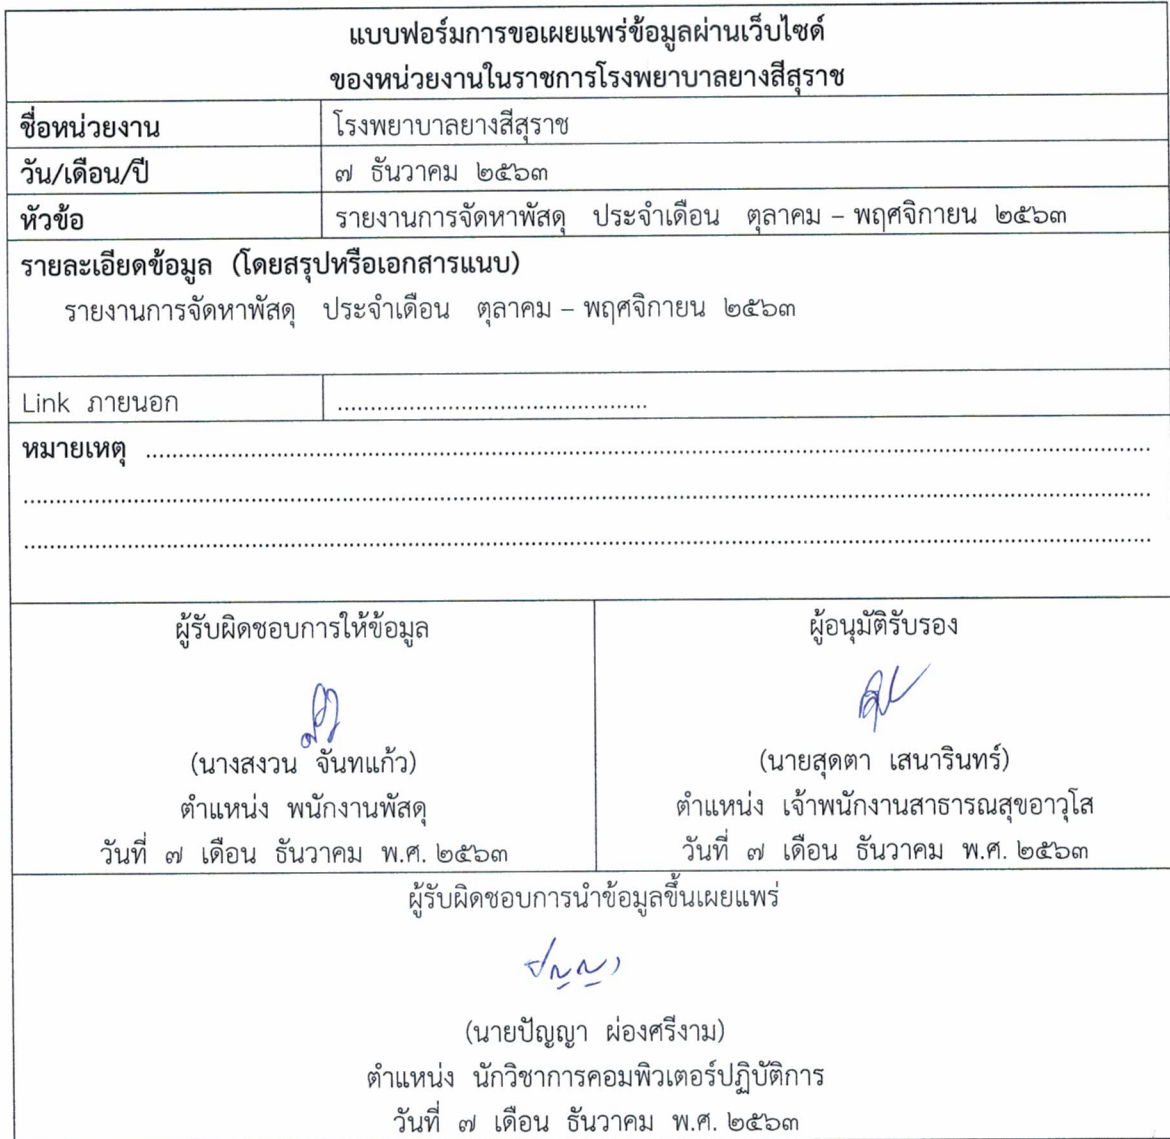 แบบฟอร์มการขอเผยแพร่ข้อมูลผ่านเว็บไซด์
ของหน่วยงานในราชการโรงพยาบาลยางสีสุราช
ชื่อหน่วยงาน โรงพยาบาลยางสีสุราช
วัน/เดือน/ปี ๗ ธันวาคม ๒๕๖๓
หัวข้อ รายงานการจัดหาพัสดุ ประจำเดือน ตุลาคม – พฤศจิกายน ๒๕๖๓
รายละเอียดข้อมูล (โดยสรุปหรือเอกสารแนบ)
รายงานการจัดหาพัสดุ ประจำเดือน ตุลาคม – พฤศจิกายน ๒๕๖๓
Link ภายนอก ................................................
หมายเหตุ ................................................
................................................
................................................
ผู้รับผิดชอบการให้ข้อมูล
(นางสงวน จันทแก้ว)
ตำแหน่ง พนักงานพัสดุ
วันที่ ๗ เดือน ธันวาคม พ.ศ. ๒๕๖๓
ผู้อนุมัติรับรอง
(นายสุดตา เสนารินทร์)
ตำแหน่ง เจ้าพนักงานสาธารณสุขอาวุโส
วันที่ ๗ เดือน ธันวาคม พ.ศ. ๒๕๖๓
ผู้รับผิดชอบการนำข้อมูลขึ้นเผยแพร่
ปัญญา
(นายปัญญา ผ่องศรีงาม)
ตำแหน่ง นักวิชาการคอมพิวเตอร์ปฏิบัติการ
วันที่ ๗ เดือน ธันวาคม พ.ศ. ๒๕๖๓